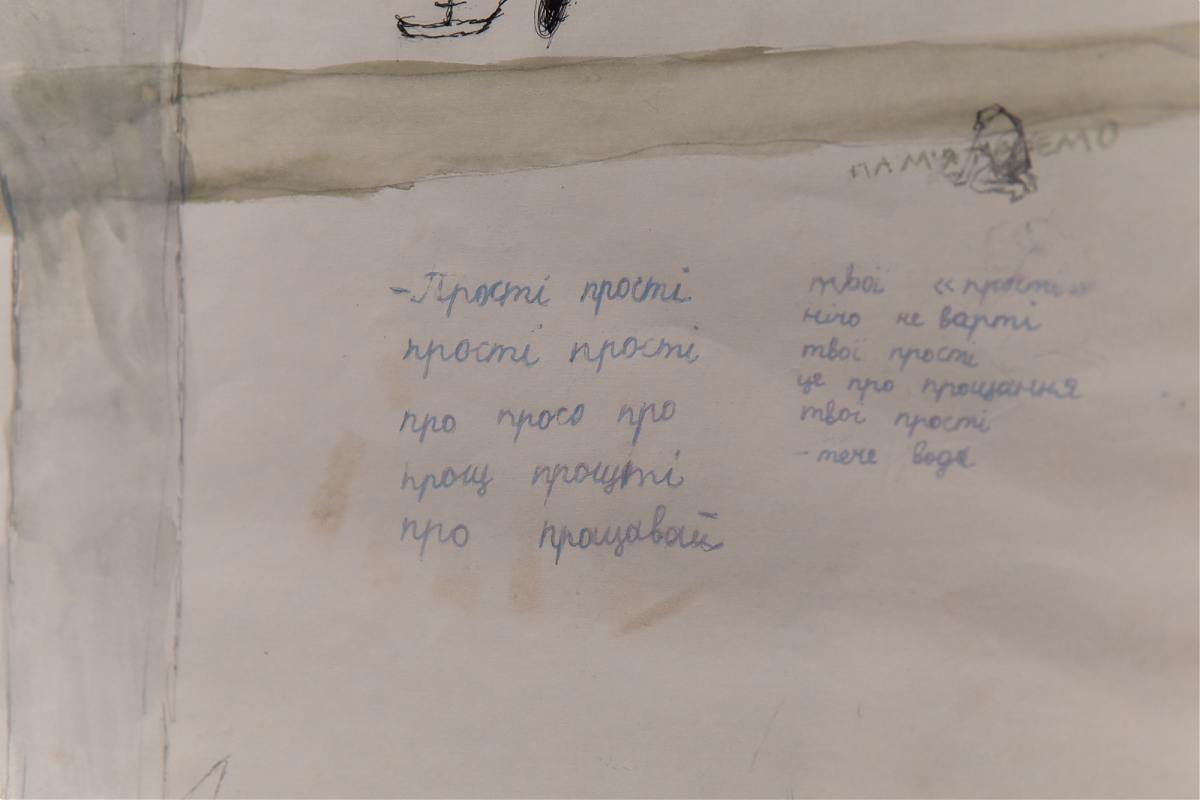 ПАМ'Я ЄМО
-Прості прості
прості прості
про просо про
прощ прощті
про прощавай
твої «прості»
нічо не варті
твої прості
це про прощання
твої прості
- тече вода